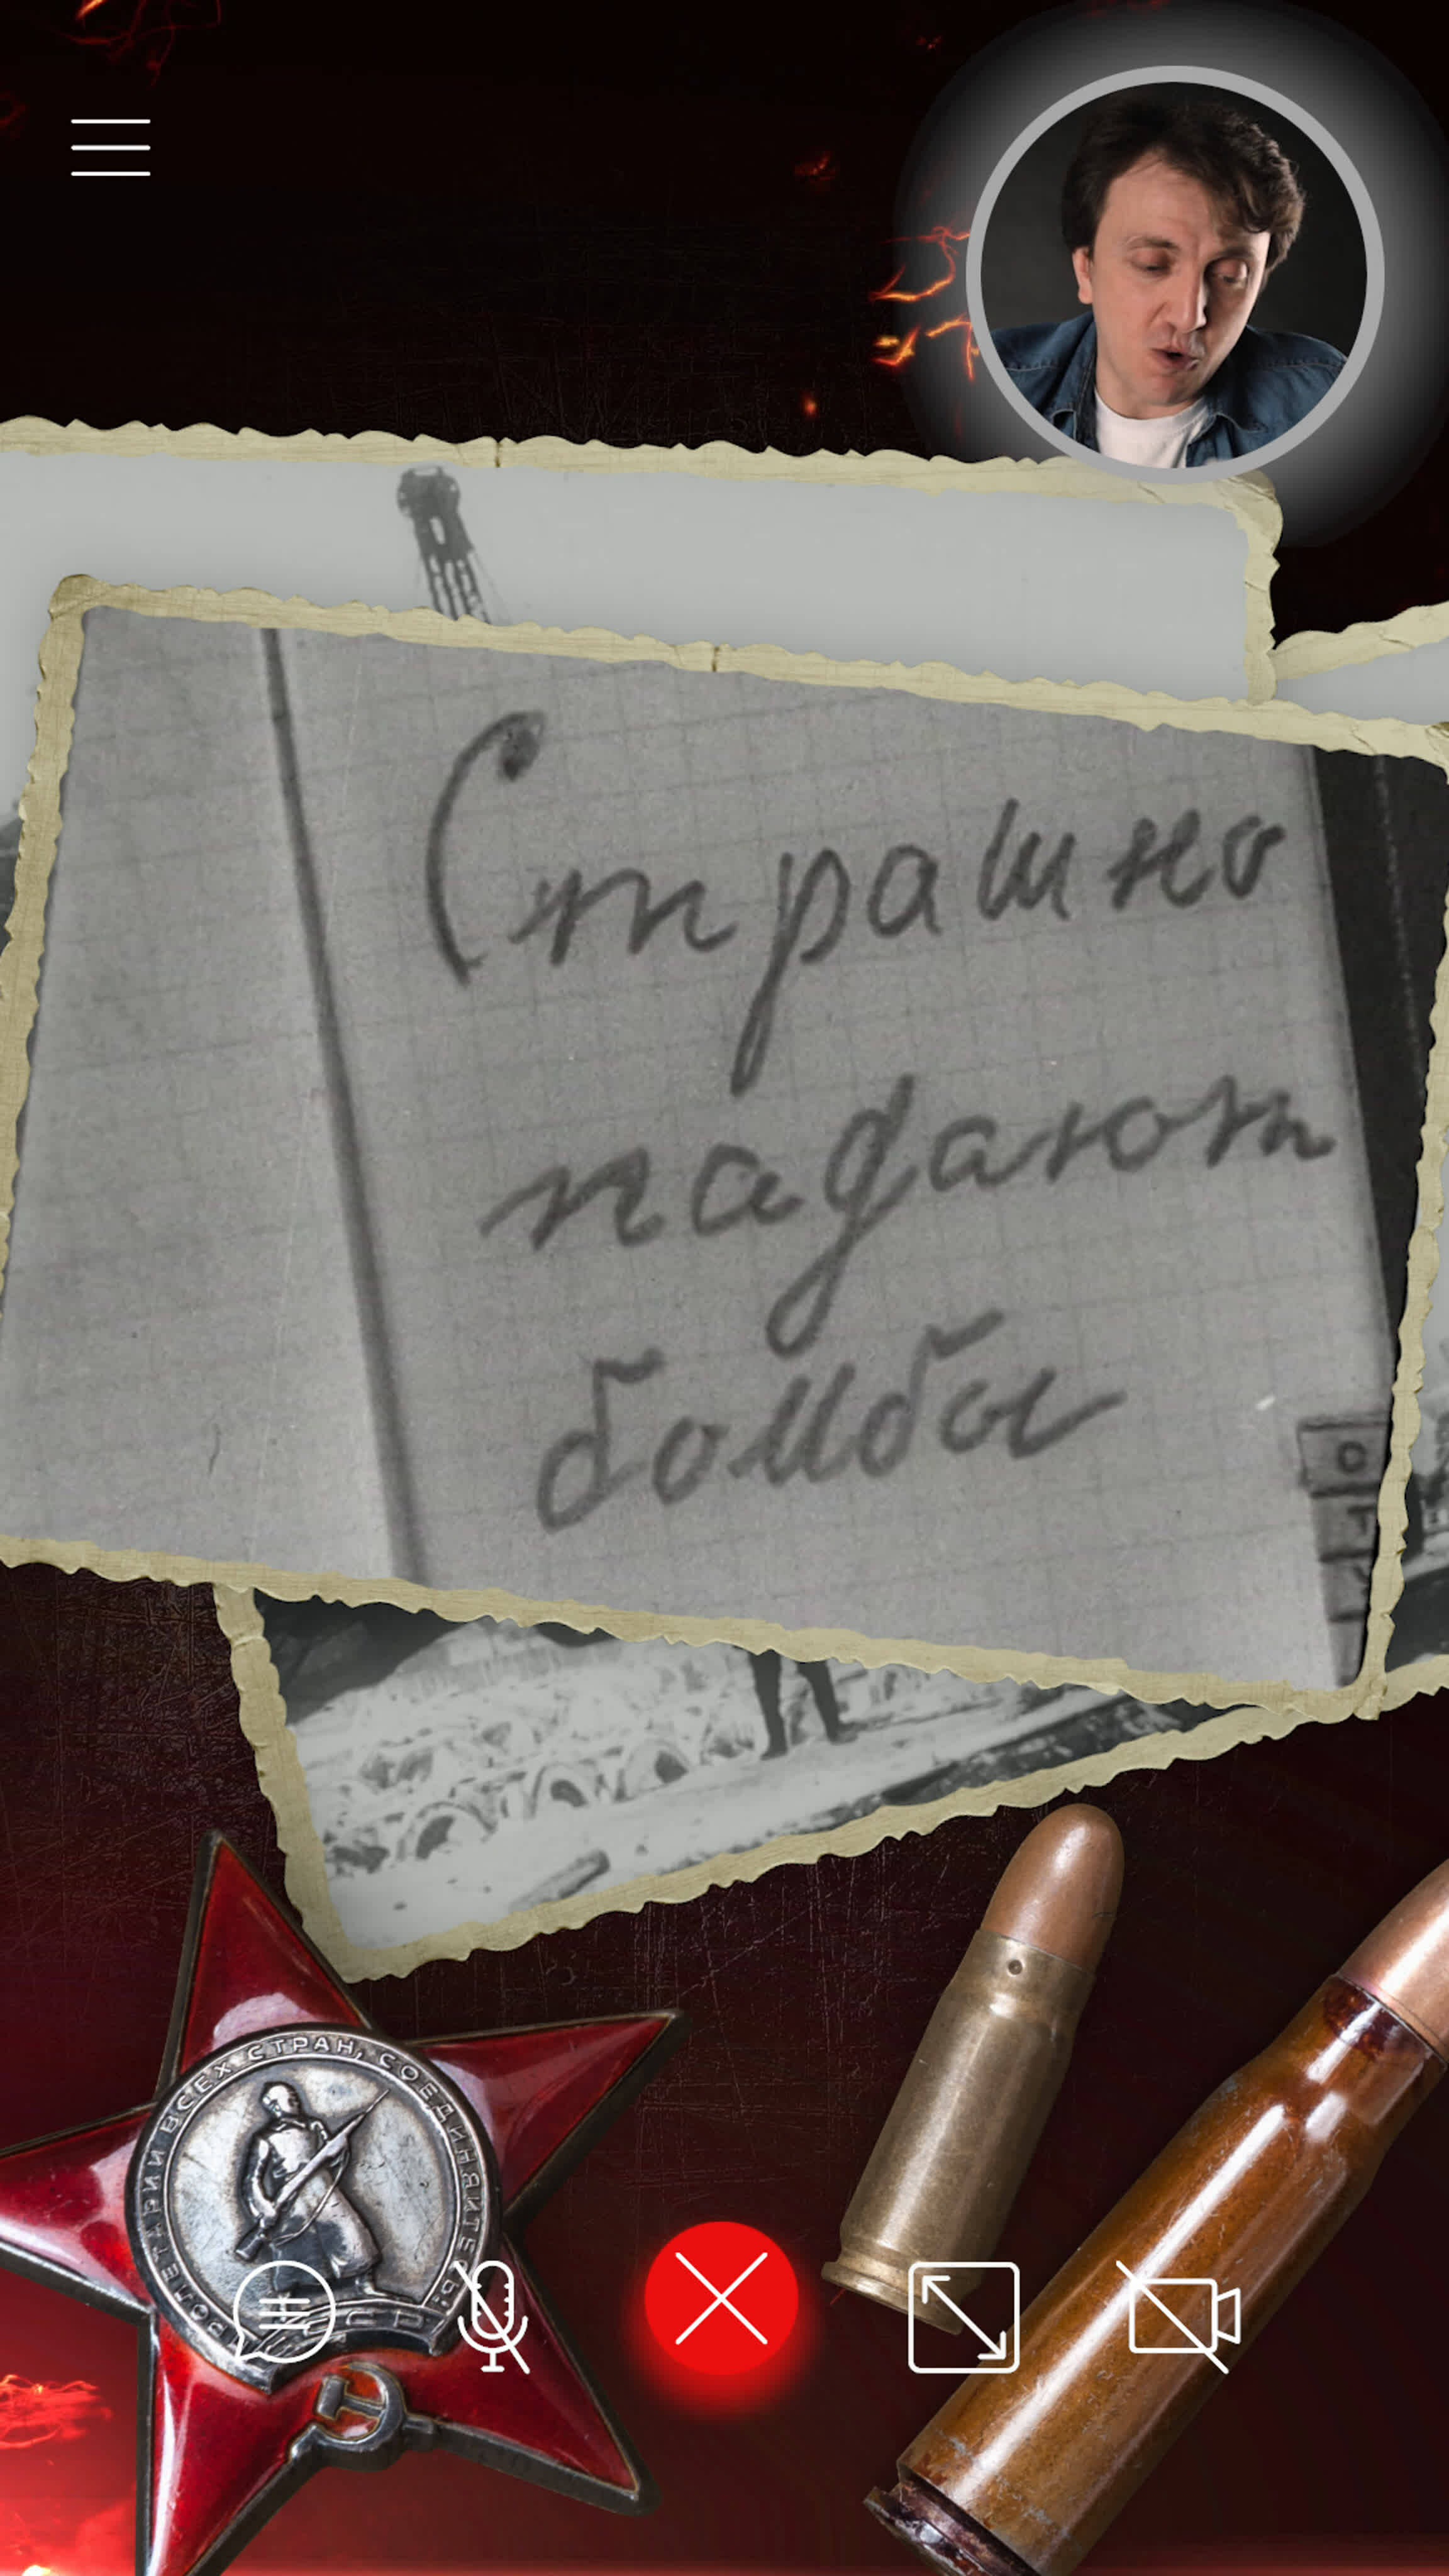 Страшно
падают
бомбы
О
Т
ПРОЛЕТАРИИ ВСЕХ СТРАН, СОЕДИНЯЙТЕСЬ!